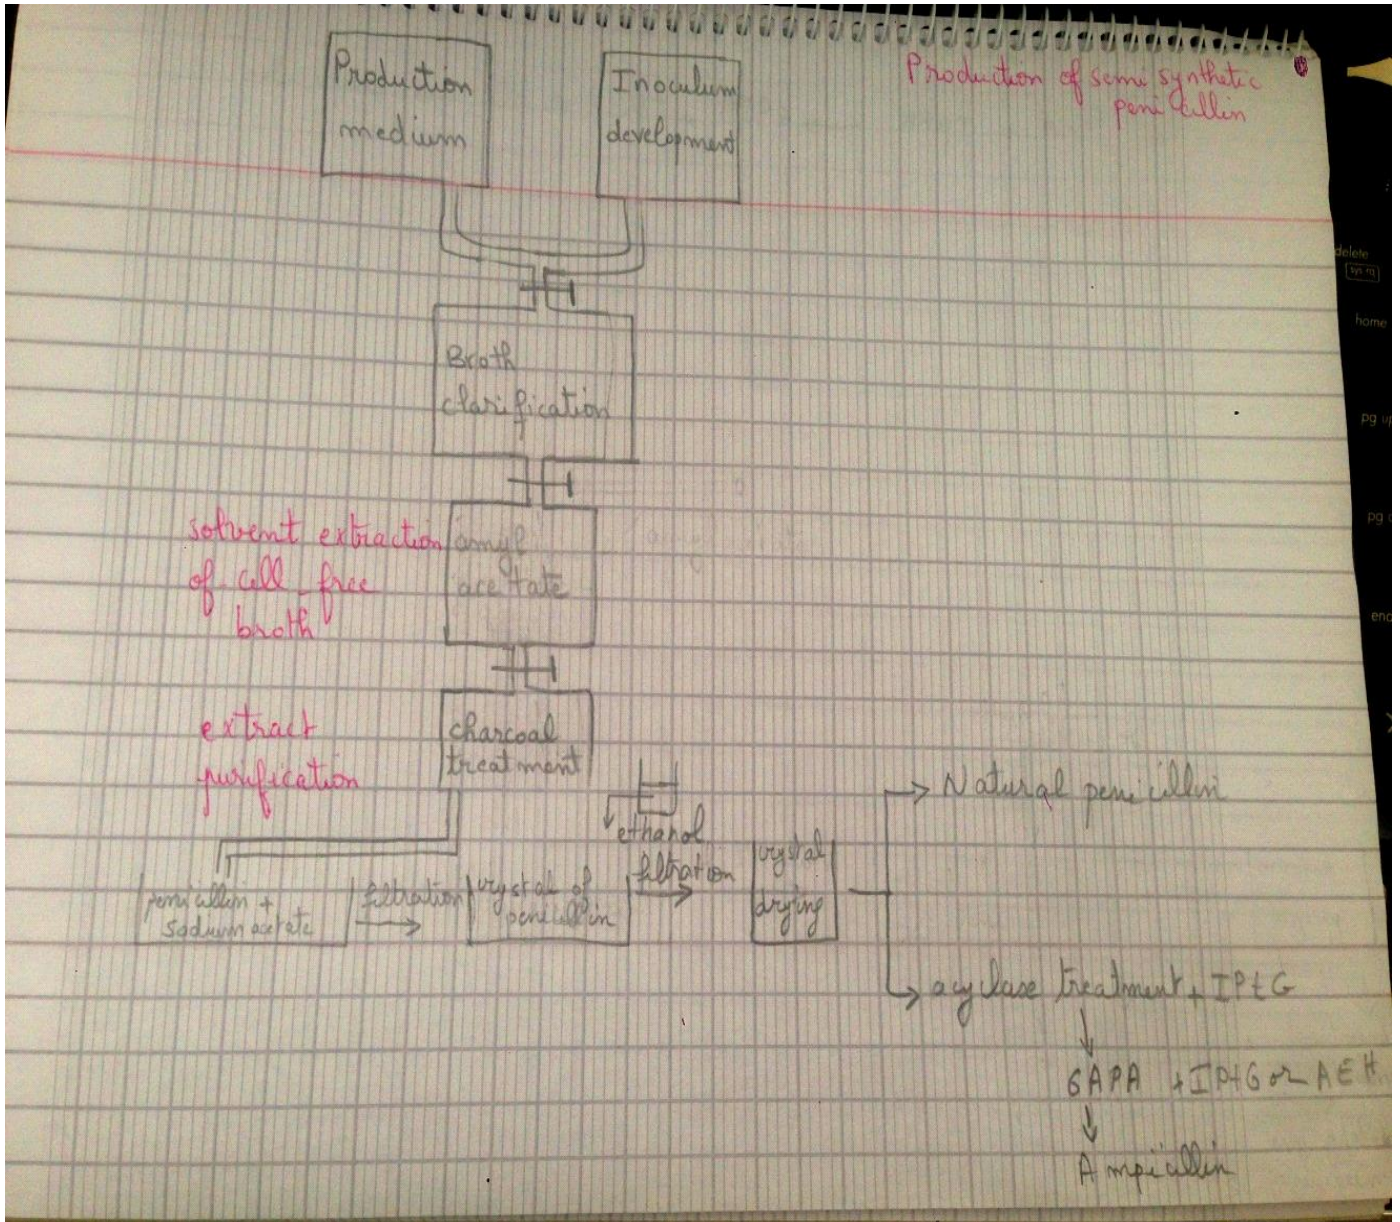 Production of semi synthetic
penicillin
Production
medium
Inoculum
development
Broth
clarification
solvent extraction
of cell-free
broth
amyl
acetate
extract
purification
charcoal
treatment
ethanol
penicillin +
Sodium acetate
filtration
crystal of
penicillin
filtration
crystal
drying
Natural penicillin
acylase treatment + IPtG
6APA + IPtG or AEH
Ampicillin
delete
sys rq
home
pg up
pg
end